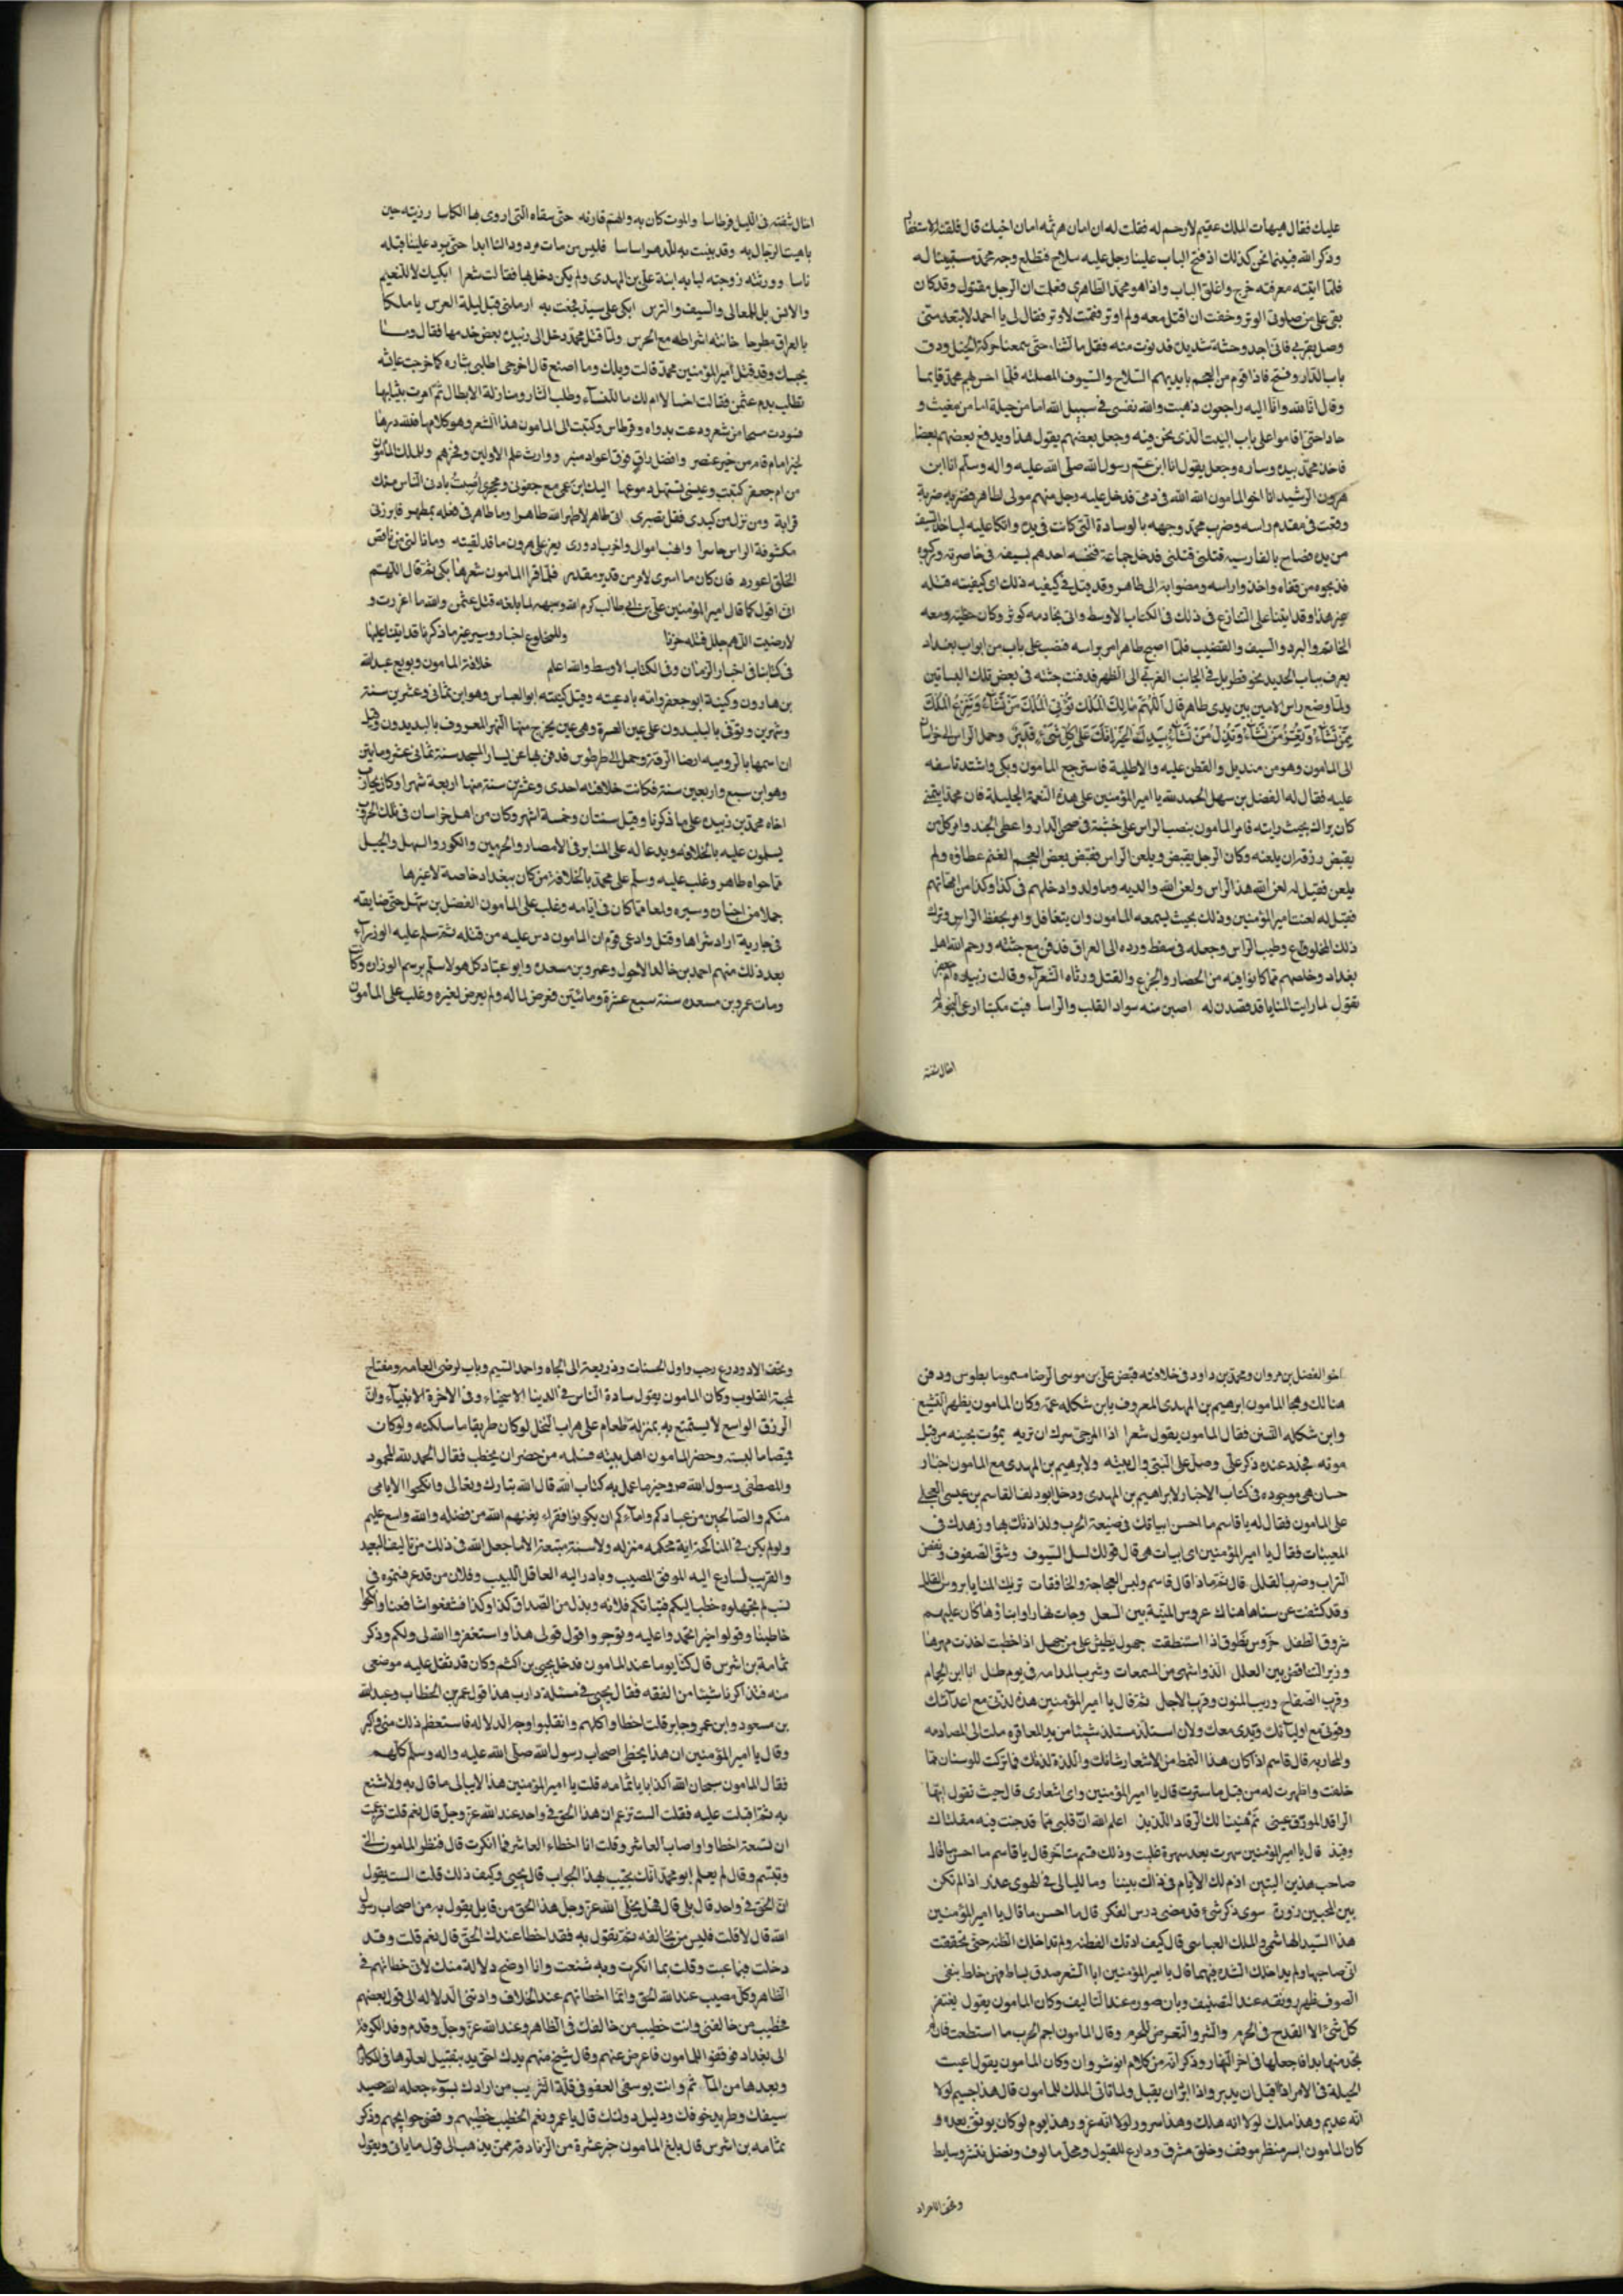 عليك فقال هيهات الملك عقيم لا رحم له فقلت له ان امان هرثمه امان اخيك قال فلقنته الاستغفار
وذكر الله فبينما نحن كذلك اذ فتح الباب علينا رجل عليه سلاح فتطلع وجه محمد مستبينا له
فلما اثبته معرفة خرج واغلق الباب واذا هو محمد الطاهرى فعلمت ان الرجل مقتول وقد كان
بقى على من صلوتى الوتر وخفت ان اقتل معه ولم اوتر فقمت لاوتر فقال لى يا احمد لا تبتعد منى
وصل بقربى فانى اجد وحشة شديدة فدنوت منه فقل ما لبثنا حتى سمعنا حركة الخيل ودق
باب الدار وفتح فاذا قوم من العجم بايديهم السلاح والسيوف المصلته فلما احس بهم محمد قايما
وقال انا لله وانا اليه راجعون ذهبت والله نفسى فى سبيل الله اما من حيلة اما من مغيث و
جاوا حتى اقاموا على باب البيت الذى نحن فيه وجعل بعضهم يقول هذا ويدفع بعضهم بعضا
فاخذ محمد بيده وسادة وجعل يقول انا ابن عم رسول الله صلى الله عليه واله وسلم انا ابن
هرون الرشيد انا اخو المامون الله الله فى دمى فدخل عليه رجل منهم مولى لطاهر فضربه ضربة
وقعت فى مقدم راسه وضرب محمد وجهه بالوسادة التى كانت فى يده واتكا عليه لياخذ السيف
من يده فصاح بالفارسية قتلنى قتلنى فدخل جماعة فنخسه احدهم بسيفه فى خاصرته وركبوه
فذبحوه من قفاه واخذوا راسه ومضوا به الى طاهر وقد قيل فى كيفيه ذلك اى كيفيته قتله
غير هذا وقد اتينا على التنازع فى ذلك فى الكتاب الاوسط واتى بخادمه كوثر وكان معه
الخاتم والبرد والسيف والقضيب فلما اصبح طاهر امر براسه فنصب على باب من ابواب بغداد
يعرف بباب الحديد نحو قطربل فى الجانب الغربى الى الظهر فدفنت جثته فى بعض تلك البساتين
ولما وضع راس الامين بين يدى طاهر قال اللهم مالك الملك تؤتى الملك من تشاء وتنزع الملك
ممن تشاء وتعز من تشاء وتذل من تشاء بيدك الخير انك على كل شىء قدير وحمل الراس الى خراسان
الى المامون وهو من منديل والقطن عليه والاطلية فاسترجع المامون وبكى واشتد تاسفه
عليه فقال له الفضل بن سهل الحمد لله يا امير المؤمنين على هذه النعمة الجليلة فان محمدا يتمنى
كان يراك بحيث رايته فامر المامون بنصب الراس على خشبة فى صحن الدار واعطى الجند وامر كل من
يقبض رزقه ان يلعنه وكان الرجل يقبض ويلعن الراس فقبض بعض العجم عطاؤه ولم
يلعن فقيل له لعن الله هذا الراس ولعن الله والديه وما ولد وادخلهم فى كذا وكذا من امهاتهم
فقيل له لعنت امير المؤمنين وذلك بحيث يسمعه المامون وان يتغافل وامر بحفظ الراس وترك
ذلك المخلوع وطيب الراس وجعله فى سفط ورده الى العراق فدفن مع جثته ورحم الله اهل
بغداد وخلصهم مما كانوا فيه من الحصار والجزع والقتل ورثاه الشعراء وقالت زبيدة ام جعفر
تقول لما رايت المنايا قد قصدن له اصبن منه سواد القلب والراسا فبت مكتئبا ارعى النجوم له
اخال سنته
اخال سنته فى الليل قرطاسا والموت كان به والهم قارنه حتى سقاه التى اروى بها الكاسا رزيته حين
باهيت الرجال به وقد بنيت به للدهر اساسا فليس من مات مردودا لنا ابدا حتى يرد علينا قبله
ناسا وورثته زوجته لبابه ابنة على بن المهدى ولم يكن دخل بها فقالت شعرا ابكيك لا للنعيم
والانس بل للمعالى والسيف والترس ابكى على سيد فجعت به ارملنى قبل ليلة العرس يا ملكا
بالعراق مطرحا خانته اشراطه مع الحرس ولما قتل محمد دخل الى زبيدة بعض خدمها فقال وما
يجلسك وقد قتل امير المؤمنين محمد قالت ويلك وما اصنع قال اخرجى اطلبى بثاره كما خرجت عايشه
تطلب بدم عثمن فقالت اخسا لا ام لك ما للنساء وطلب الثار ومنازلة الابطال ثم امرت بثيابها
فسودت مسحا من شعر ودعت بدواه وقرطاس وكتبت الى المامون هذا الشعر وهو كلامها فلله درها
لخير امام قام من خير عنصر وافضل راق فوق اعواد منبر ووارث علم الاولين وفخرهم وللملك المامون
من ام جعفر كتبت وعينى تستهل دموعها اليك ابن عمى مع جفونى ومحجرى اصبت بادنى الناس منك
قرابة ومن نزل من كبدى فقل تصبرى اتى طاهر لا طهر الله طاهرا وما طاهر فى فعله بمطهر فابرزنى
مكشوفة الراس حاسرا وانهب اموالى واخرب ادورى يعز على هرون ما قد لقيته وما نالنى من ناقص
الخلق اعورد فان كان ما اسرى لامر من قدير مقدر فلما قرا المامون شعرها بكى ثم قال اللهم
انى اقول كما قال امير المؤمنين على بن ابى طالب كرم الله وجهه لما بلغه قتل عثمن والله ما اعزرت و
لا رضيت اللهم جلل قتله حزنا وللمخلوع اخبار وسير غير ما ذكرنا قد اتينا عليها
فى كتابنا فى اخبار الزمان وفى الكتاب الاوسط والله اعلم خلافة المامون وبويع عبد الله
بن هارون وكنيته ابو جعفر وامه بادغيته وقيل كنيته ابو العباس وهو ابن ثمانى وعشرين سنة
وشهرين وتوفى بالبليدون على عين العسرة وهى عين يخرج منها النهر المعروف بالبديدون وقيل
ان اسمها بالروميه ارضا الرقة وحمل الى طرطوس فدفن بها عن يسار المسجد سنة ثمانى عشر ومايتين
وهو ابن سبع واربعين سنة فكانت خلافته احدى وعشرين سنة منها اربعة شهرا وكان يحارب
اخاه محمد بن زبيده على ما ذكرنا وقيل سنتان وخمسة اشهر وكان من اهل خراسان فى تلك الحروب
يسلمون عليه بالخلافه ويدعا له على المنابر فى الامصار والحرمين والكور والسهل والجبل
مما حواه طاهر وغلب عليه وسلم على محمد بالخلافة من كان ببغداد خاصة لا غيرها
جملا من اخباره وسيره ولمعا مما كان فى ايامه وغلب على المامون الفضل بن سهل حتى ضايقه
فى جارية اراد شراها وقتل وادعى قوم ان المامون دس عليه من قتله ثم سلم عليه الوزراء
بعد ذلك منهم احمد بن خالد الاحول وعمرو بن مسعده وابو عباد كل هولا سلم برسم الوزاره وكان
ومات عمرو بن مسعده سنة سبع عشرة ومائتين فعرض لماله ولم يعرض لغيره وغلب على المامون
اخو الفضل بن مروان ومحمد بن داود فى خلافته قبض على بن موسى الرضا مسموما بطوس ودفن
هنالك وهجا المامون ابرهيم بن المهدى المعروف بابن شكله عمه وكان المامون يظهر التشيع
وابن شكله التسنن فقال المامون يقول شعرا اذا المرجى سرك ان تريه يموت بحينه من قبل
موته فجدد عنده ذكر على وصل على النبى وال بيته ولابرهيم بن المهدى مع المامون اخبار
حسان هى موجوده فى كتاب الاخبار لابراهيم بن المهدى ودخل ابو دلف القاسم بن عيسى العجلى
على المامون فقال له يا قاسم ما احسن ابياتك فى صنيعة الحرب ولذاذتك بها وزهدك فى
المغنيات فقال يا امير المؤمنين اى ابيات هى قال قولك لسل السيوف وشق الصفوف ونفض
التراب وضرب القلل قال ثم ماذا قال قاسم ولبس العجاجة والخافقات تريك المنايا بروس القلل
وقد كشفت عن سناها هناك عروس المنية بين الشعل وجات تهادا وابناؤها كان عليهم
شروق الطفل خروس نطوق اذا استنطقت جهول يطيش على من جهل اذا خطبت اخذت مهرها
وزير التناقض بين العلل الذ واشهى من المسمعات وشرب المدامه فى يوم طل انا ابن الحسام
وقرب الصفاح وريب المنون وقرب الاجل ثم قال يا امير المؤمنين هذه لذتى مع اعدائك
وقوتى مع اوليائك ويدى معك ولان استلذ مستلذ شيئا من يد المعاقره ملت الى المصادمه
والمحاربه قال قاسم اذا كان هذا النمط من الاشعار شانك واللذة لذتك فما تركت للوسنان مما
خلفت واظهرت له من قبل ما سترت قال يا امير المؤمنين واى اشعارى قال حيث تقول ايها
الراقد المورق عينى نم هنيئا لك الرقاد اللذيذ اعلم الله ان قلبى مما قد جنت فيه مقلتاك
وقيذ قال يا امير المؤمنين سهرت بعد سهرة غلبت وذلك قديم متاخر قال يا قاسم ما احسن ما قال
صاحب هذين البيتين اذم لك الايام فى ذات بيننا وما لليالى فى الهوى عذر اذا لم تكن
بين المحبين زورة سوى ذكر شىء قد مضى درس الفكر قال ما احسن ما قال يا امير المؤمنين
هذا السيد الهاشمى والملك العباسى قال كيف ادتك الفطنه ولم تداخلك الظنه حتى تحققت
انى صاحبها ولم يداخلك الشك فيهما قال يا امير المؤمنين انما الشعر صدق بساط فمن خلط
الصوف ظهر رونقه عند التصنيف وبان ضوره عند التاليف وكان المامون يقول يغتفر
كل شىء الا القدح فى الحرم والشر والتعرض للحرم وقال المامون اجم الحرب ما استطعت فان لم
تجد منها بدا فاجعلها فى اخر النهار وذكر انه من كلام انوشروان وكان المامون يقول اعيت
الحيلة فى الامر اذا اقبل ان يدبر واذا ادبر ان يقبل ولما تاتى الملك للمامون قال هذا جسيم لولا
انه عديم وهذا ملك لولا انه هلك وهذا سرور لولا انه غرور وهذا يوم لو كان يوثق بعده و
كان المامون البشر منظر موقف وخلق مشرق ودارع للقبول ومحل مالوف وفضل منتشر وبسايط
وتحف الامراد
وتحف الاد ودرع رحب واول الحسنات وذريعة الى الجاه واحمد الشيم وباب لرضى العامه ومفتاح
لمحبة القلوب وكان المامون يقول سادة الناس فى الدنيا الاسخياء وفى الاخرة الانبياء وان
الرزق الواسع لا يستمتع به بمنزلة طعام على هراب البخل لو كان طريقا ما سلكته ولو كان
قميصا ما لبسته وحضر المامون اهل بيته فسئله من حضر ان يخطب فقال الحمد لله المحمود
والمصطفى رسول الله ص وخير ما عمل به كتاب الله قال الله تبارك وتعالى وانكحوا الايامى
منكم والصالحين من عبادكم وامائكم ان يكونوا فقراء يغنهم الله من فضله والله واسع عليم
ولو لم يكن فى المناكحة اية محكمه منزله ولا سنة متبعة الا ما جعل الله فى ذلك من تاليف البعيد
والقريب لسارع اليه الموفق المصيب وبادر اليه العاقل اللبيب وفلان من قد عرفتموه فى
نسب لم تجهلوه خطب اليكم فتياتكم فلانه وبذل من الصداق كذا وكذا فشفعوا شافعنا وانكحوا
خاطبنا وقولوا خيرا تحمدوا عليه وتوجروا اقول قولى هذا واستغفروا الله لى ولكم وذكر
ثمامة بن اشرس قال كنا يوما عند المامون فدخل يحيى بن اكثم وكان قد ثقل عليه موضعى
منه فتذاكرنا شيئا من الفقه فقال يحيى فى مسئلة دارت هذا قول عمر بن الخطاب وعبد الله
بن مسعود وابن عمر وجابر قلت اخطاوا كلهم وانقلبوا وجه الدلاله فاستعظم ذلك منى واكبر
وقال يا امير المؤمنين ان هذا يخطى اصحاب رسول الله صلى الله عليه واله وسلم كلهم
فقال المامون سبحان الله اكذا يا ثمامه قلت يا امير المؤمنين هذا لا يبالى ما قال به ولا شنع
به ثم اقبلت عليه فقلت الست تزعم ان هذا الحق فى واحد عند الله عز وجل قال نعم قلت فزعمت
ان تسعة اخطاوا واصاب العاشر وقلت انا اخطاء العاشر فما انكرت قال فنظر المامون الى
وتبسم وقال لم يعلم ابو محمد انك تجيب بهذا الجواب قال يحيى وكيف ذلك قلت الست تقول
ان الحق فى واحد قال بلى قال فهل يخلى الله عز وجل هذا الحق من قايل يقول به من اصحاب رسول
الله قال لا قلت فليس من يخالفه ثم يقول به فقد اخطا عندك الحق قال نعم قلت وقد
دخلت فيما عبت وقلت بما انكرت وبه شنعت وانا اوضح دلالة منك لانى خطاتهم فى
الظاهر وكل مصيب عند الله الحق وانما اخطاتهم عند الخلاف وادتنى الدلاله الى قول بعضهم
فخطيت من خالفنى وانت خطيت من خالفك فى الظاهر وعند الله عز وجل وقدم وفد الكوفه
الى بغداد فوقفوا للمامون فاعرض عنهم وقال شيخ منهم يدك احق يد بتقبيل لعلوها فى المكارم
وبعدها من الماثم وانت يوسفى العفو فى قلة التثريب من ارادك بسوء جعله الله حصيد
سيفك وطريد خوفك ودليل دولتك قال يا عمرو نعم الخطيب خطيبهم وقضى حوايجهم وذكر
ثمامه بن اشرس قال بلغ المامون خبر عشرة من الزنادقه ممن يذهب الى قول مانى ويقول